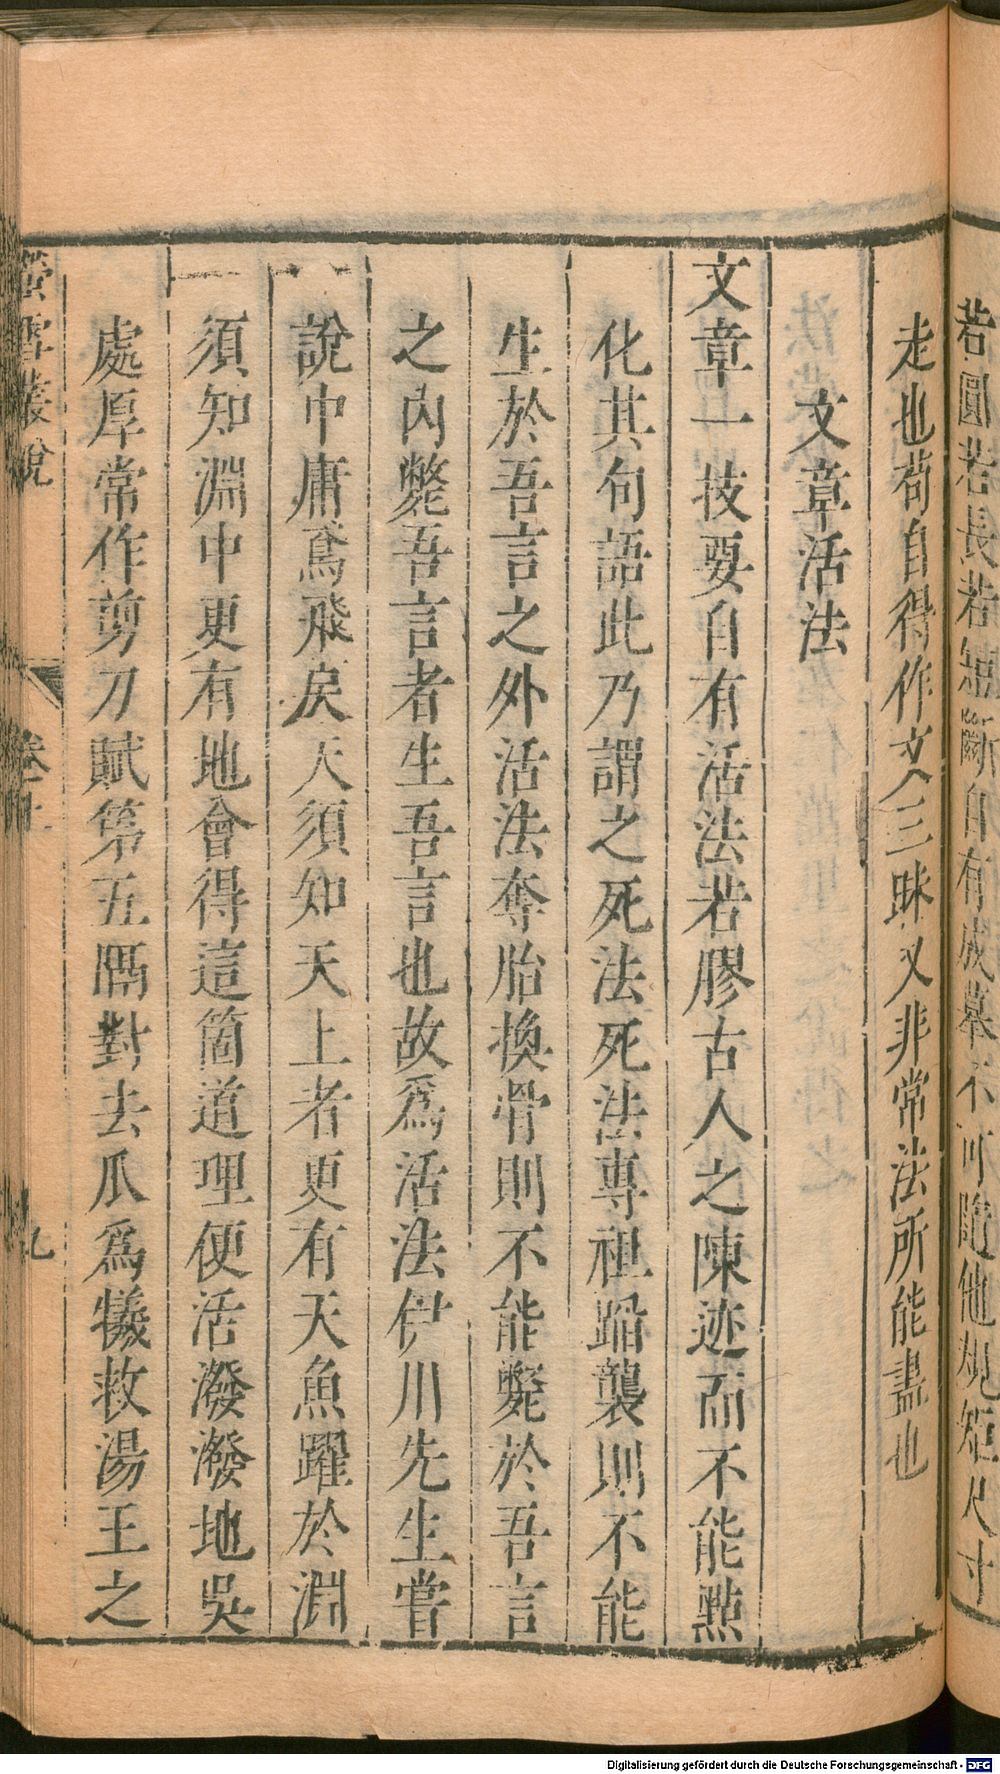 若圓若長若短斷自有成摹不可隨他規矩尺寸
走也苟自得作文三昧又非常法所能盡也
文章活法
文章一技要自有活法若膠古人之陳迹而不能點
化其句語此乃謂之死法死法專祖蹈襲則不能
生於吾言之外活法奪胎換骨則不能斃於吾言
之內斃吾言者生吾言也故爲活法伊川先生嘗
說中庸鳶飛戾天須知天上者更有天魚躍於淵
須知淵中更有地會得這箇道理便活潑潑地吳
處厚常作剪刀賦第五隔對去爪爲犧救湯王之
螢雪叢說
卷
九
Digitalisierung gefördert durch die Deutsche Forschungsgemeinschaft - DFG